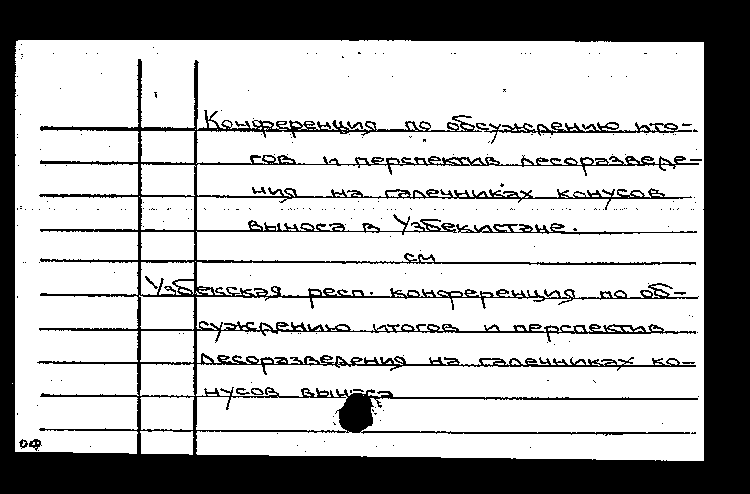 Конференция по обсуждению ито-
гов и перспектив лесоразведе-
ния на галечниках конусов
выноса в Узбекистане.
см
Узбекская респ. конференция по об-
суждению итогов и перспектив
лесоразведения на галечниках ко-
нусов выноса
ОФ